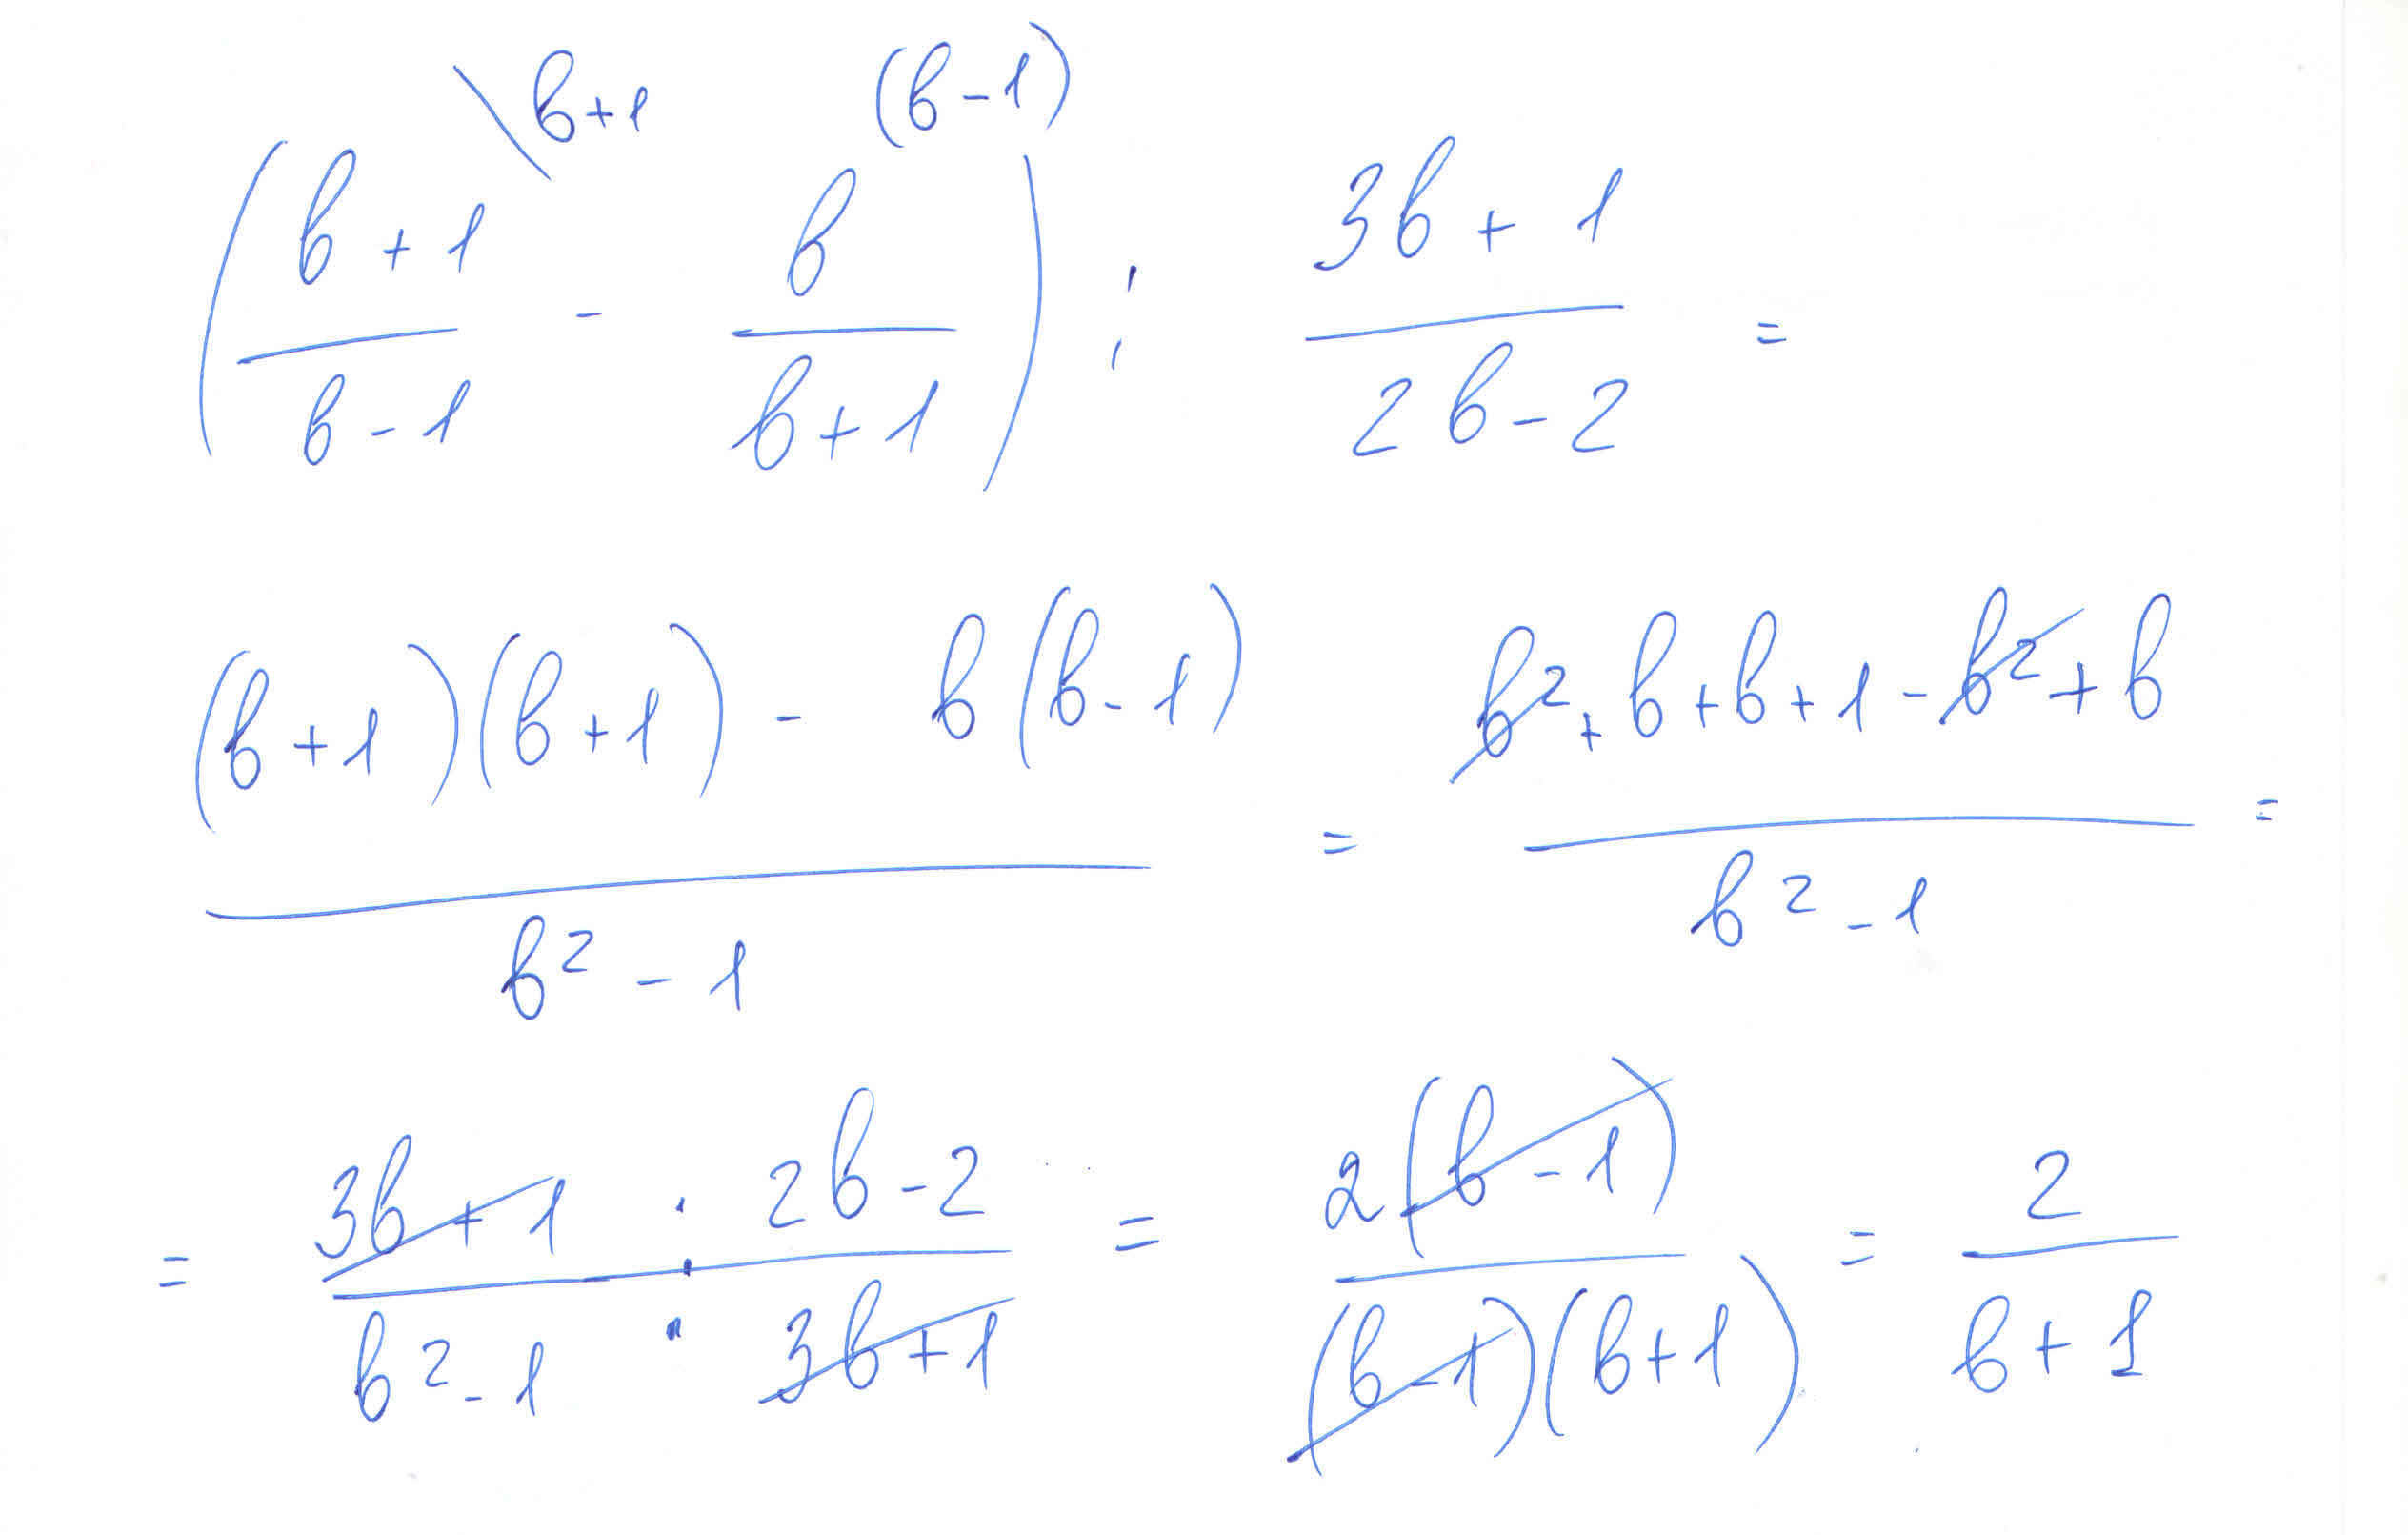 \b+1 (b-1)
((b+1)/(b-1) - b/(b+1)) : (3b+1)/(2b-2) =
((b+1)(b+1) - b(b-1))/(b²-1) = (b²+b+b+1-b²+b)/(b²-1) =
= (3b+1)/(b²-1) · (2b-2)/(3b+1) = 2(b-1)/((b-1)(b+1)) = 2/(b+1)